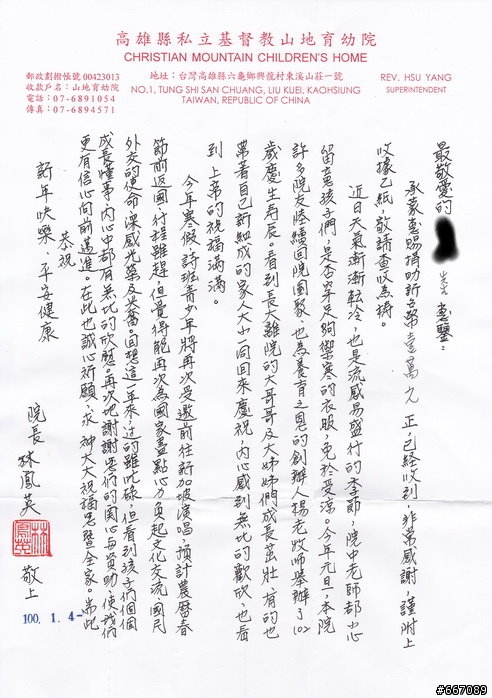 高雄縣私立基督教山地育幼院
CHRISTIAN MOUNTAIN CHILDREN'S HOME
郵政劃撥帳號 00423013
收款戶名：山地育幼院
電話：07-6891054
傳真：07-6894571
地址：台灣高雄縣六龜鄉興龍村東溪山莊一號
NO.1, TUNG SHI SAN CHUANG, LIU KUEI, KAOHSIUNG
TAIWAN, REPUBLIC OF CHINA
REV. HSU YANG
SUPERINTENDENT
最敬愛的
惠鑒：
承蒙惠賜捐助新台幣壹萬元正，已經收到，非常感謝，謹附上
收據乙紙，敬請查收為禱。
近日天氣漸漸転冷，也是流感易盛行的季節，院中老師都小心
留意孩子們，是否穿足夠禦寒的衣服，免於受涼。今年元旦，本院
許多院友陸續回院團聚，也為養育之恩的創辦人楊老牧師舉辦了102
歲慶生壽辰。看到長大離院的大哥哥及大姊姊們成長茁壯，有的也
帶著自己新組成的家人大小一同回來慶祝，內心感到無比的歡欣，也看
到上帝的祝福滿滿。
今年寒假，詩班青少年將再次受邀前往新加坡演唱，預計農曆春
節前返國，行程雖趕，但覺得能再次為國家盡點心力負起文化交流國民
外交的使命，深感光榮及興奮。回想這一年來，過的雖忙碌，但看到孩子們個個
成長懂事，內心中都有無比的欣慰。再次地謝謝您們的關心與資助，使我們
更有信心向前邁進。在此也誠心祈願，求 神大大祝福您暨全家。耑此
恭祝
新年快樂、平安健康
院長 林鳳英 敬上
100. 1. 4-
#667089